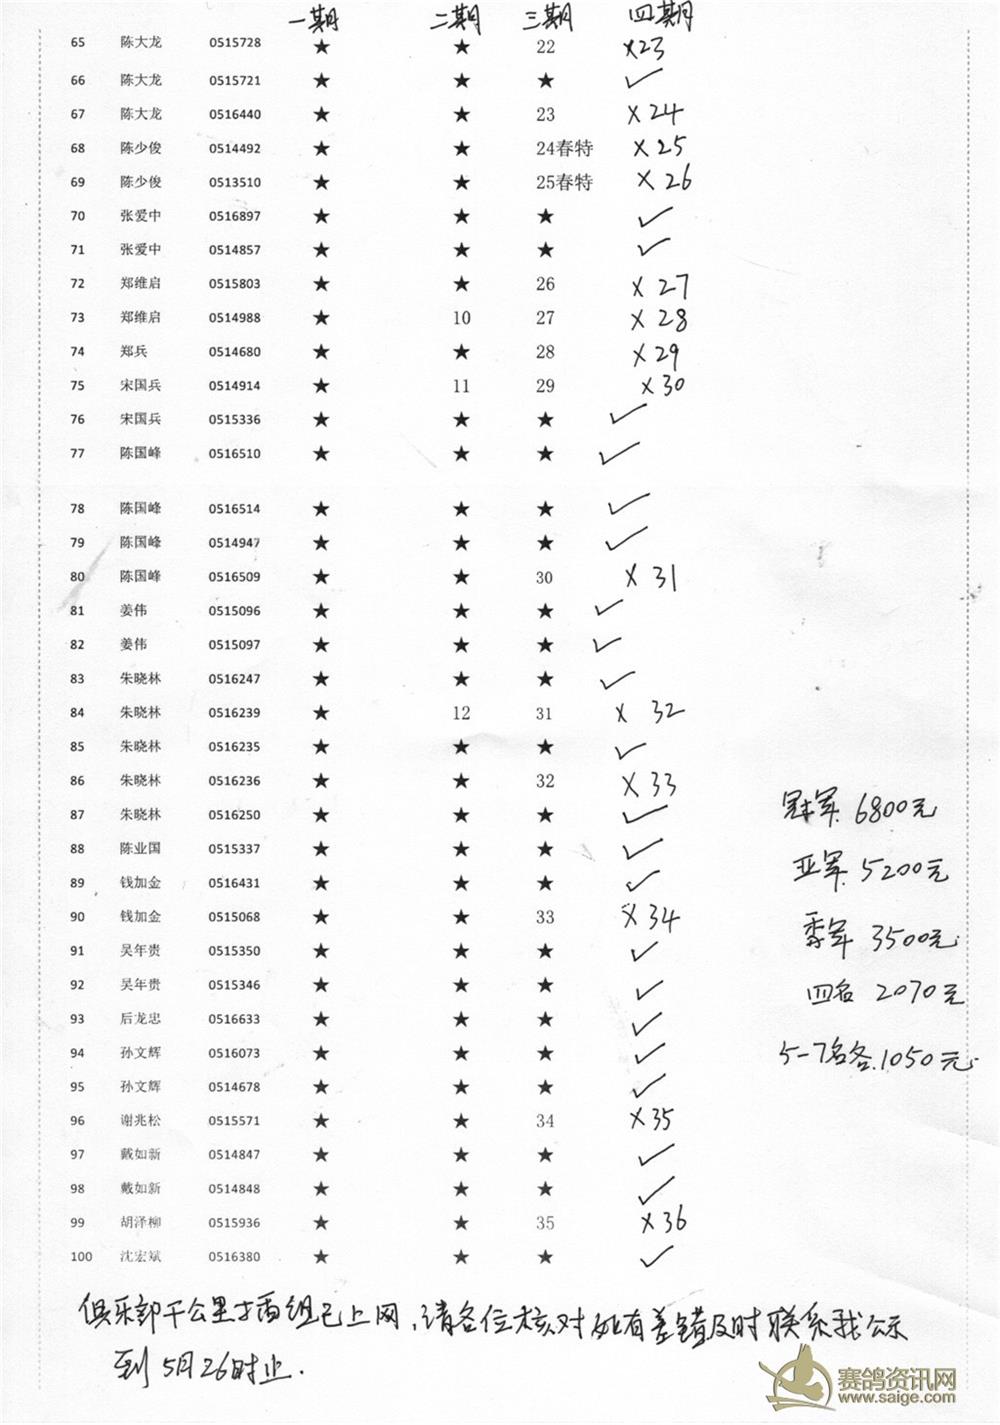 一期 二期 三期 四期
65 陈大龙 0515728 ★ ★ 22 ×23
66 陈大龙 0515721 ★ ★ ★ ✓
67 陈大龙 0516440 ★ ★ 23 ×24
68 陈少俊 0514492 ★ ★ 24春特 ×25
69 陈少俊 0513510 ★ ★ 25春特 ×26
70 张爱中 0516897 ★ ★ ★ ✓
71 张爱中 0514857 ★ ★ ★ ✓
72 郑维启 0515803 ★ ★ 26 ×27
73 郑维启 0514988 ★ 10 27 ×28
74 郑兵 0514680 ★ ★ 28 ×29
75 宋国兵 0514914 ★ 11 29 ×30
76 宋国兵 0515336 ★ ★ ★ ✓
77 陈国峰 0516510 ★ ★ ★ ✓
78 陈国峰 0516514 ★ ★ ★ ✓
79 陈国峰 0514947 ★ ★ ★ ✓
80 陈国峰 0516509 ★ ★ 30 ×31
81 姜伟 0515096 ★ ★ ★ ✓
82 姜伟 0515097 ★ ★ ★ ✓
83 朱晓林 0516247 ★ ★ ★ ✓
84 朱晓林 0516239 ★ 12 31 ×32
85 朱晓林 0516235 ★ ★ ★ ✓
86 朱晓林 0516236 ★ ★ 32 ×33
87 朱晓林 0516250 ★ ★ ★ ✓
88 陈业国 0515337 ★ ★ ★ ✓
89 钱加金 0516431 ★ ★ ★ ✓
90 钱加金 0515068 ★ ★ 33 ×34
91 吴年贵 0515350 ★ ★ ★ ✓
92 吴年贵 0515346 ★ ★ ★ ✓
93 后龙忠 0516633 ★ ★ ★ ✓
94 孙文辉 0516073 ★ ★ ★ ✓
95 孙文辉 0514678 ★ ★ ★ ✓
96 谢兆松 0515571 ★ ★ 34 ×35
97 戴如新 0514847 ★ ★ ★ ✓
98 戴如新 0514848 ★ ★ ★ ✓
99 胡泽柳 0515936 ★ ★ 35 ×36
100 沈宏斌 0516380 ★ ★ ★ ✓
冠军 6800元
亚军 5200元
季军 3500元
四名 2070元
5-7名各 1050元
俱乐部千公里 组已上网,请各位核对如有差错及时联系我公示
到5月26时止.
赛鸽资讯网
www.saige.com